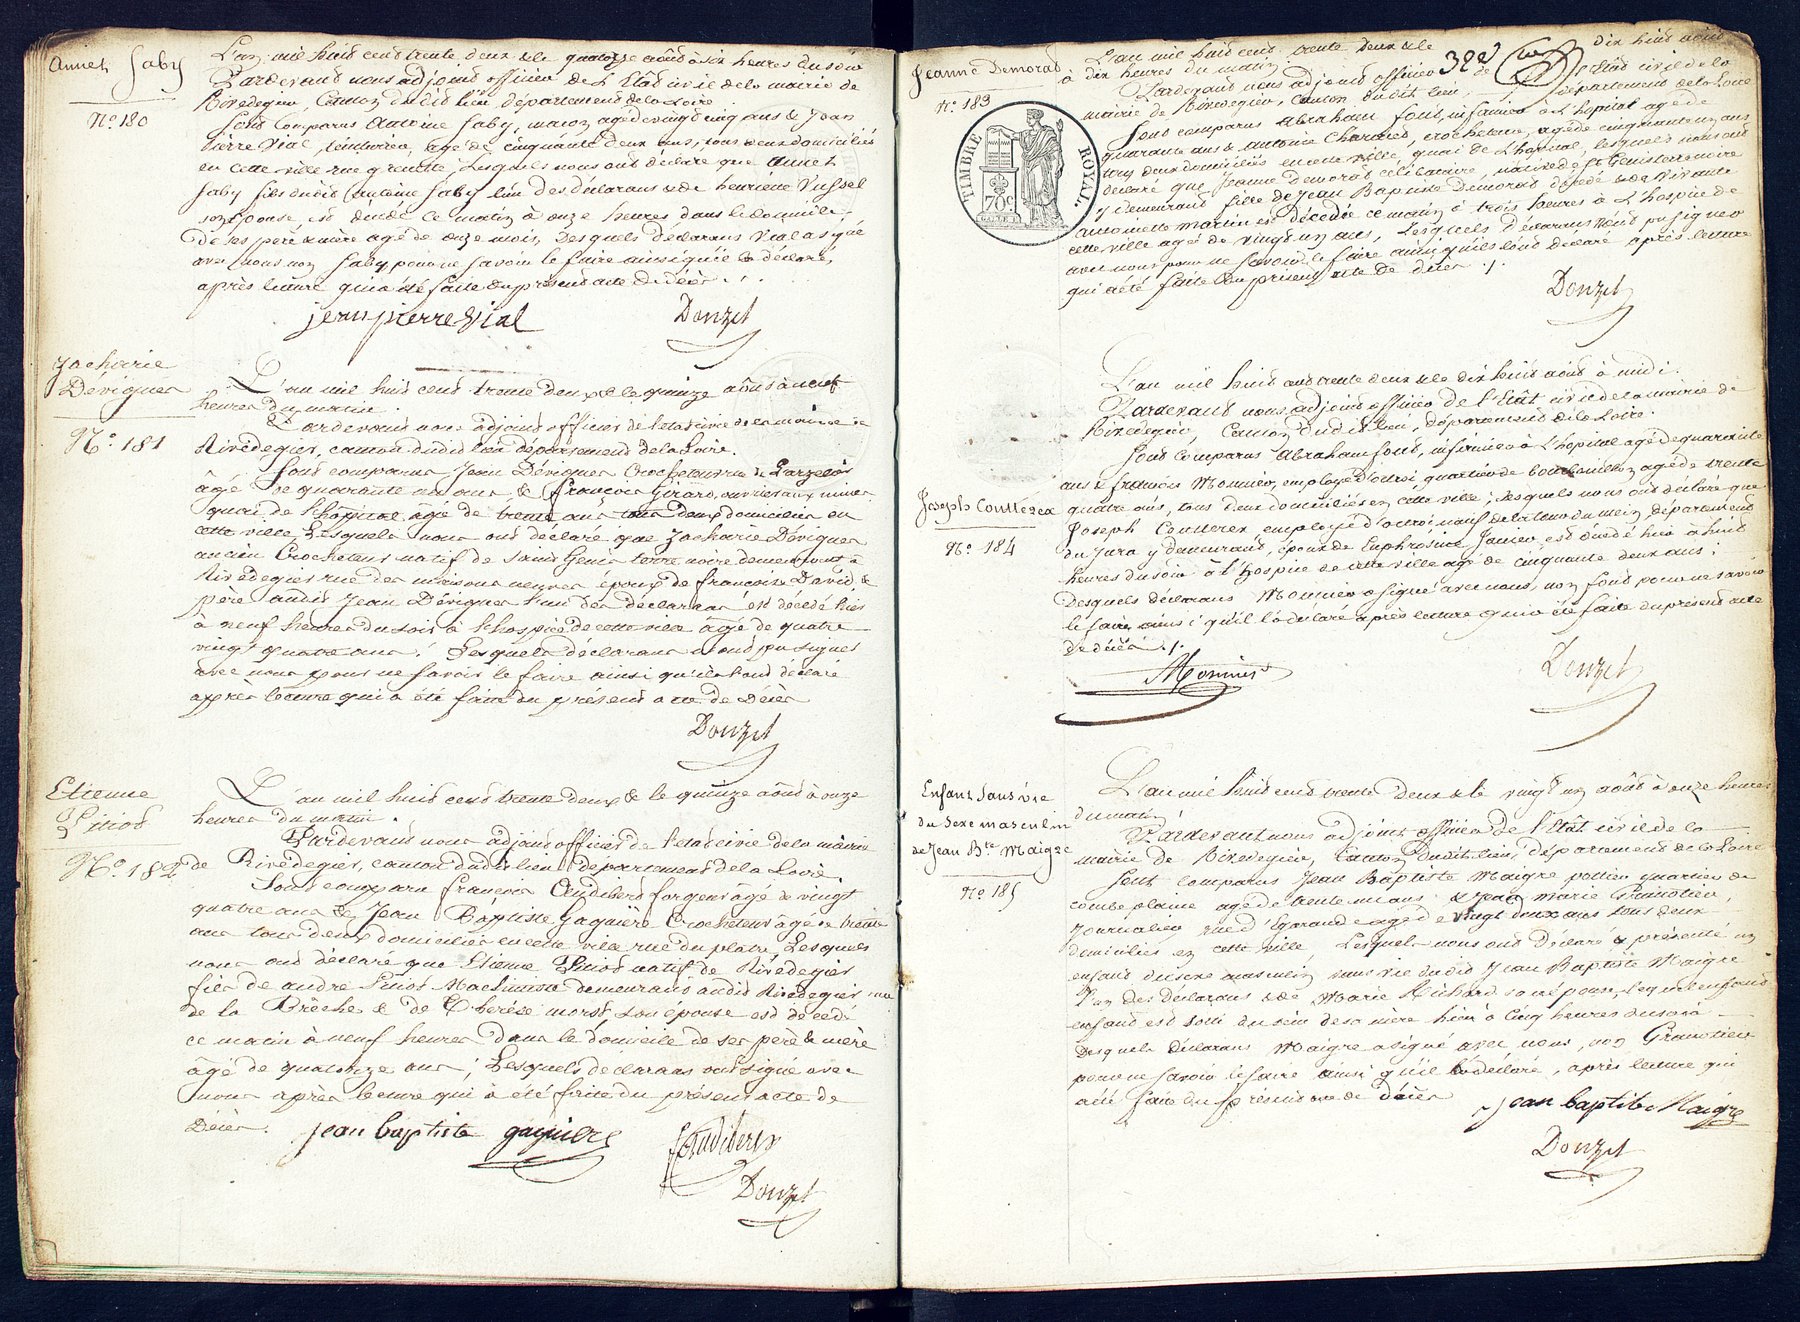 Annet Faby
N.º 180
L'an mil huit cent trente deux & le quatorze août à six heures du soir
Pardevant nous adjoint officier de l'Etât civil de la mairie de
Rivedegier, Canton dudit lieu, département de la Loire
Sont comparus Antoine Faby, maçon agé de vingt cinq ans & Jean
Pierre Vial, teinturier, agé de cinquante deux ans, tous deux domiciliés
en cette ville rue grenette, Lesquels nous ont déclaré que Annet
Faby fils dudit Antoine Faby l'un des déclarans & de henriette Vussel
son épouse, est décédé ce matin à onze heures dans le domicile
de ses père & mère agé de onze mois, Desquels déclarans Vial a signé
avec nous non Faby pour ne savoir le faire ainsi qu'il l'a déclaré,
après lecture qui a été faite du présent acte de décès ./.
jean pierre Vial Donzel
Zacharie
Dévigner
N.º 181
L'an mil huit cent trente deux & le quinze août à neuf
heures du matin.
Pardevant nous adjoint officier de l'etat civil de la mairie de
Rivedegier, canton dudit lieu département de la Loire.
Sont comparus Jean Dévigner Crocheteur rue de
âgé de quarante un ans, & françois Girard, ouvrier aux mines
quai de l'hôpital âgé de trente ans tous deux domiciliés en
cette ville Lesquels nous ont déclaré que Zacharie Dévigner
ancien Crocheteur natif de Saint Genis terre noire demeurant à
Rivedegier rue des maisons neuves époux de françoise David &
père audit Jean Dévigner l'un des déclarans est décédé hier
à neuf heures du soir à l'hospice de cette ville âgé de quatre
vingt quatre ans. Lesquels déclarans n'ont pu signer
avec nous pour ne savoir le faire ainsi qu'ils l'ont déclaré
après lecture qui a été faite du présent acte de Décès
Donzel
Etienne
Pitiot
N.º 182
L'an mil huit cent trente deux & le quinze août à onze
heures du matin.
Pardevant nous adjoint officier de l'etat civil de la mairie
de Rivedegier, canton dudit lieu département de la Loire.
Sont comparu françois Audibert forgeur âgé de vingt
quatre ans & Jean Baptiste Gagnière Crocheteur âgé de trente
ans tous deux domiciliés en cette ville rue du plâtre, Lesquels
nous ont déclaré que Etienne Pitiot natif de Rivedegier
fils de andré Pitiot Machiniste demeurant audit Rivedegier rue
de la Brèche & de Thérèse morst, son épouse est décédé
ce matin à neuf heures dans le domicile de ses père & mère
âgé de quatorze ans; Lesquels déclarans ont signé avec
nous après lecture qui a été faite du présent acte de
Décès. jean baptiste gagniere f. audibert
Donzel
322
Jeanne Demorat
N.º 183
TIMBRE ROYAL.
70 c
L'an mil huit cent trente deux & le dix huit août
à dix heures du matin
Pardevant nous adjoint officier de l'Etât civil de la
mairie de Rivedegier, Canton dudit lieu, département de la Loire
Sont comparus Abraham font, infirmier à l'hôpital agé de
quarante ans & antoine Charmet, crocheteur, agé de cinquante un ans
tous deux domiciliés en cette ville, quai de l'hôpital, lesquels nous ont
déclaré que Jeanne Demorat célibataire, native de St Genis terre noire
y demeurant fille de Jean Baptiste Demorat décédé & de vivante
antoinette Martin est décédée ce matin à trois heures à l'hospice de
cette ville agé de vingt un ans, Lesquels déclarans n'ont pu signer
avec nous pour ne savoir le faire ainsi qu'ils l'ont déclaré après lecture
qui a été faite du présent acte de décès ./.
Donzel
Joseph Coutterez
N.º 184
L'an mil huit cent trente deux & le dix huit août à midi.
Pardevant nous adjoint officier de l'Etât civil de la mairie de
Rivedegier, Canton dudit lieu, département de la Loire.
Sont comparus Abraham font, infirmier à l'hôpital agé de quarante
ans & francois Monnier, employé d'octroi, quartier de agé de trente
quatre ans, tous deux domiciliés en cette ville; Lesquels nous ont déclaré que
Joseph Coutterez employé d'octroi natif de département
du Jura y demeurant, époux de Euphrosine Janier est décédé hier à huit
heures du soir à l'hospice de cette ville agé de cinquante deux ans;
Desquels déclarans Monnier a signé avec nous, non font pour ne savoir
le faire ainsi qu'il l'a déclaré après lecture qui a été faite du présent acte
de décès ./.
Monnier Donzel
Enfant sans vie
du sexe masculin
de Jean Bte Maigre
N.º 185
L'an mil huit cent trente deux & le vingt un août à onze heures
du matin
Pardevant nous adjoint officier de l'Etât civil de la
mairie de Rivedegier, Canton dudit lieu, département de la Loire
Sont comparus Jean Baptiste Maigre potier quartier de
combe plaine agé de trente un ans & Jean Marie Granotier,
Journalier rue d'Egarande agé de vingt deux ans tous deux
domiciliés en cette ville, Lesquels nous ont déclaré & présenté un
enfant du sexe masculin sans vie dudit Jean Baptiste Maigre
l'un des déclarans & de Marie Richard son épouse, lequel enfant
enfant est sorti du sein de sa mère hier à cinq heures du soir
Desquels déclarans Maigre a signé avec nous, non Granotier
pour ne savoir le faire ainsi qu'il l'a déclaré, après lecture qui
a été faite du présent acte de décès jean baptiste Maigre
Donzel